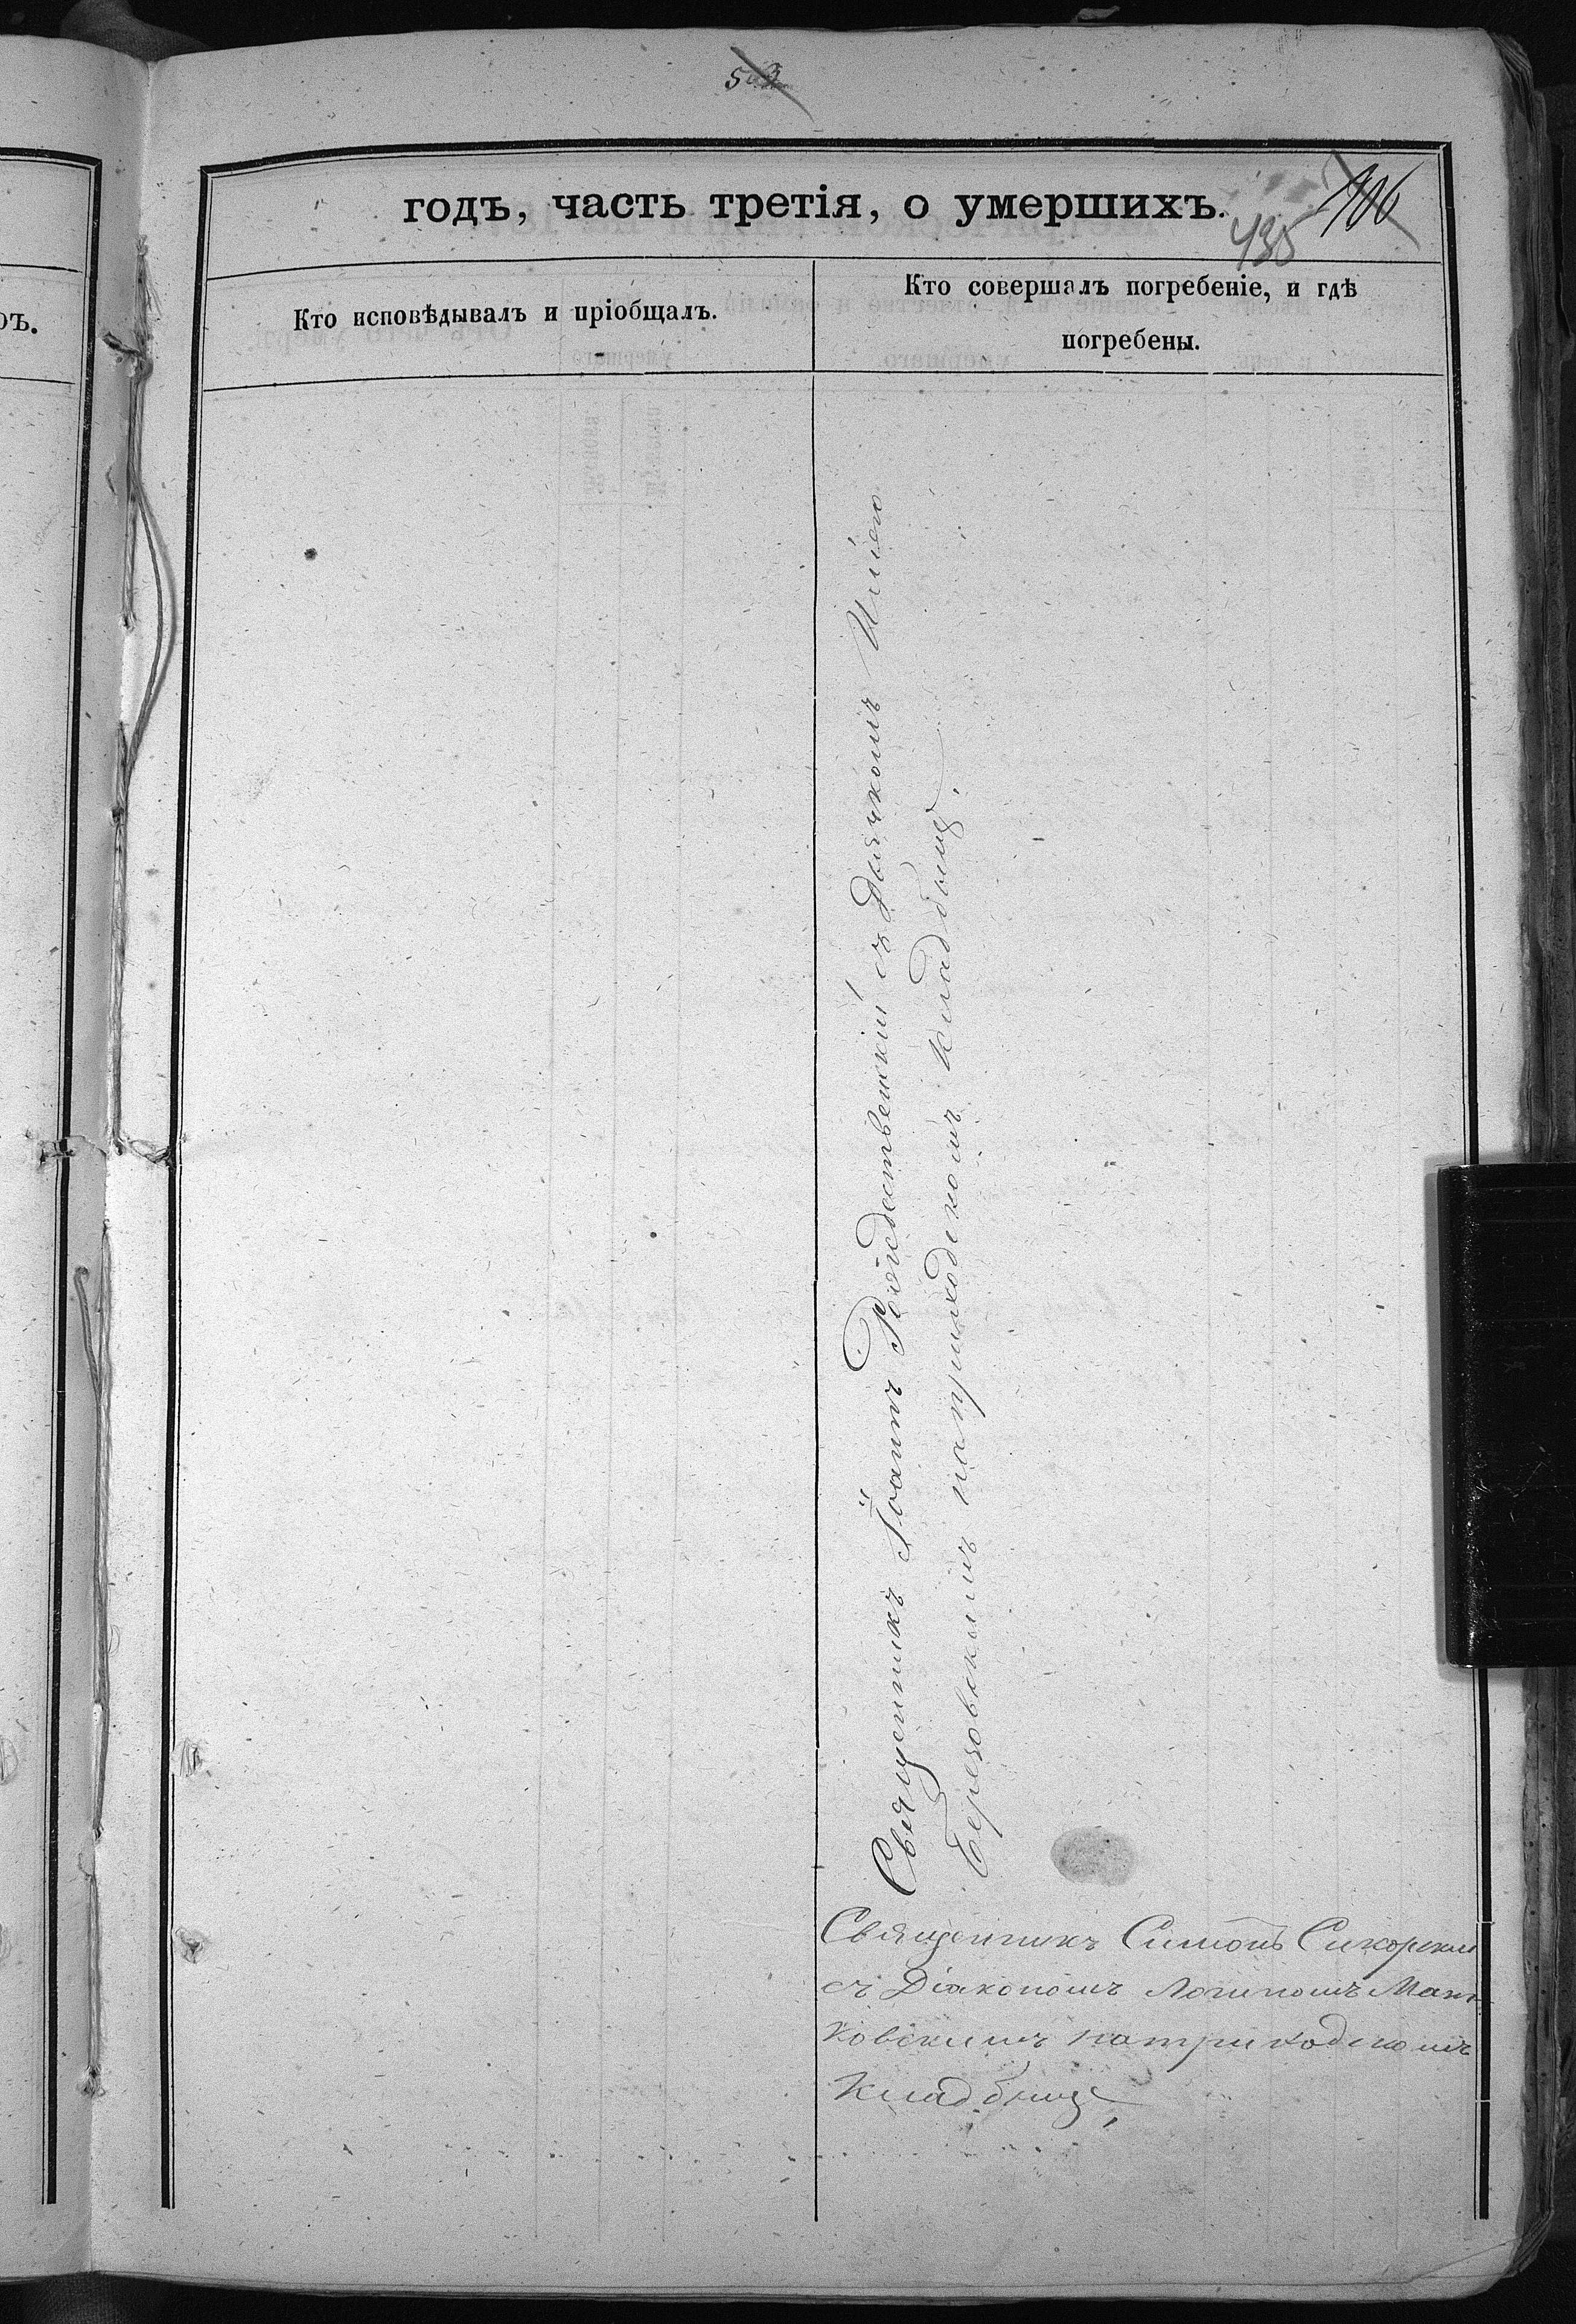 503
годъ, часть третія, о умершихъ.
435
906
ръ.
Кто исповѣдывалъ и пріобщалъ.
Кто совершалъ погребеніе, и гдѣ
погребены.
Священникъ Іоаннъ Рождественскій съ Дьячкомъ Иліею
Березовскимъ на приходскомъ кладбищѣ.
Священникъ Симонъ Сикорскій
съ Діакономъ Логиномъ Мань
ковскимъ на приходскомъ
Кладбищѣ,